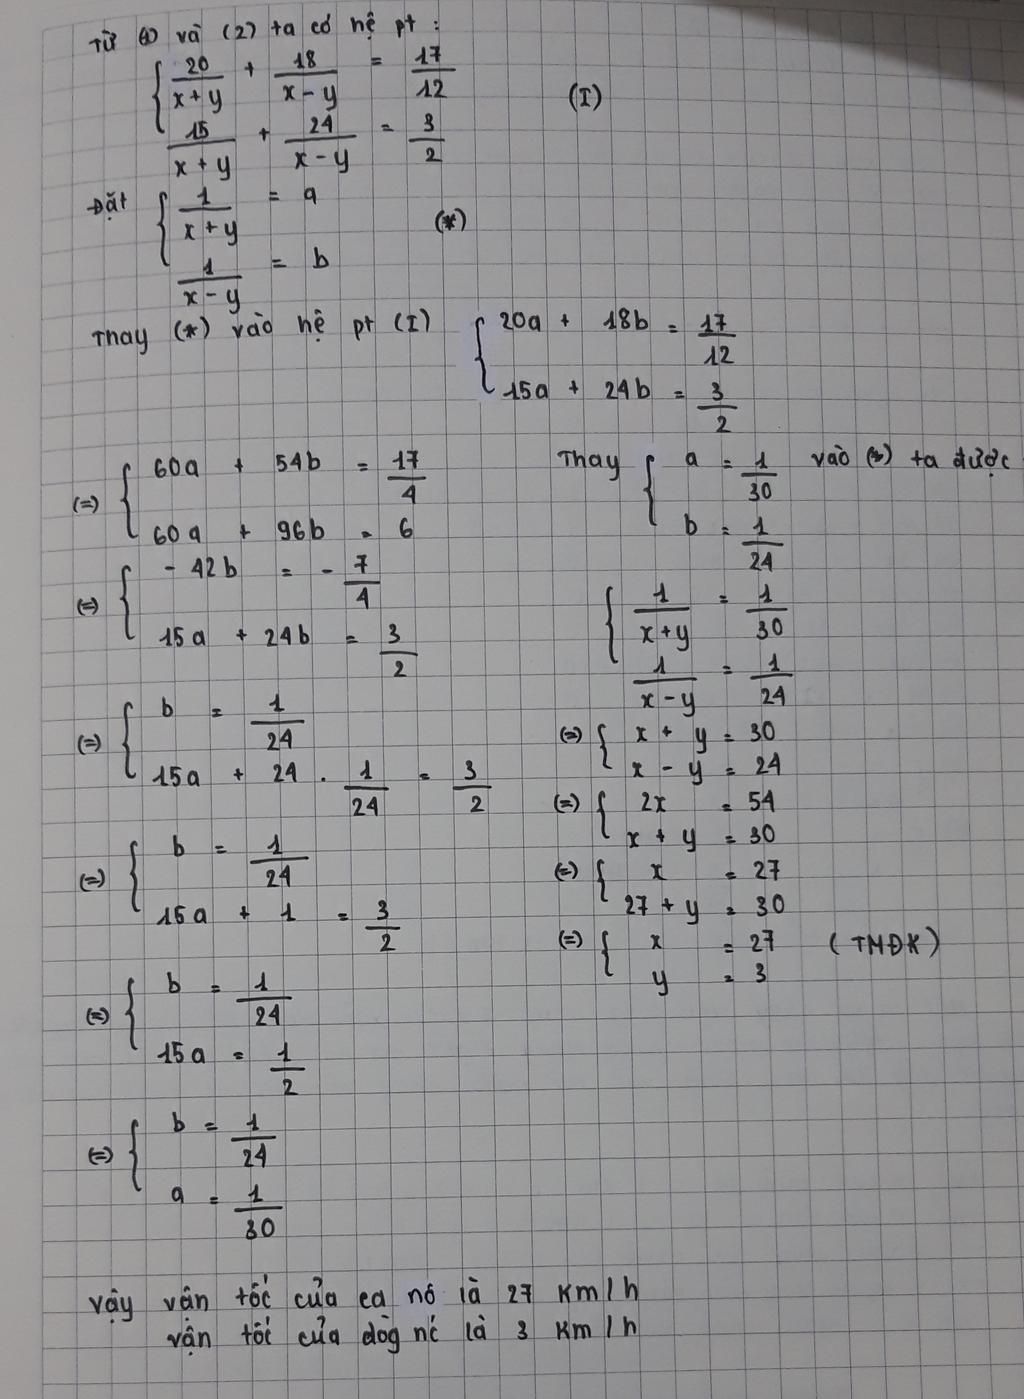 Từ (1) và (2) ta có hệ pt :
{ 20/(x+y) + 18/(x-y) = 17/12
15/(x+y) + 24/(x-y) = 3/2 (I)
Đặt { 1/(x+y) = a
1/(x-y) = b (*)
Thay (*) vào hệ pt (I) { 20a + 18b = 17/12
15a + 24b = 3/2
(=) { 60a + 54b = 17/4
60a + 96b = 6
(=) { - 42b = - 7/4
15a + 24b = 3/2
(=) { b = 1/24
15a + 24 . 1/24 = 3/2
(=) { b = 1/24
15a + 1 = 3/2
(=) { b = 1/24
15a = 1/2
(=) { b = 1/24
a = 1/30
Thay { a = 1/30 vào (*) ta được
b = 1/24
{ 1/(x+y) = 1/30
1/(x-y) = 1/24
(=) { x + y = 30
x - y = 24
(=) { 2x = 54
x + y = 30
(=) { x = 27
27 + y = 30
(=) { x = 27 (TMĐK)
y = 3
Vậy vận tốc của ca nô là 27 km/h
vận tốc của dòg nc là 3 km/h